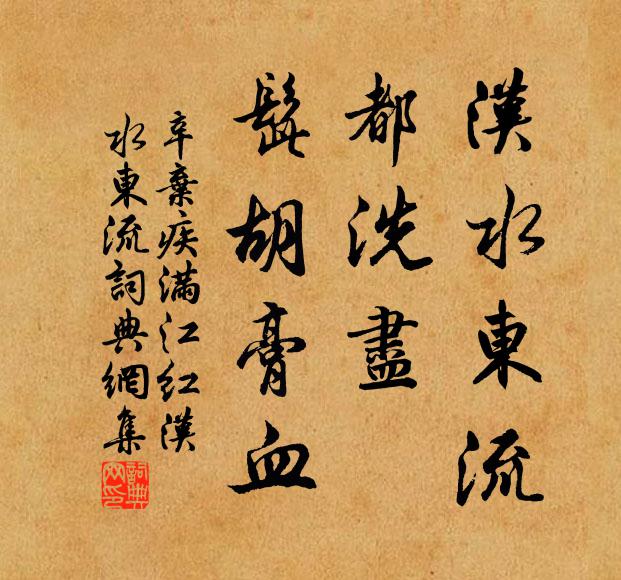 漢水東流
都洗盡
髭胡膏血
辛棄疾滿江紅漢
水東流詞典網集
詞典
网印